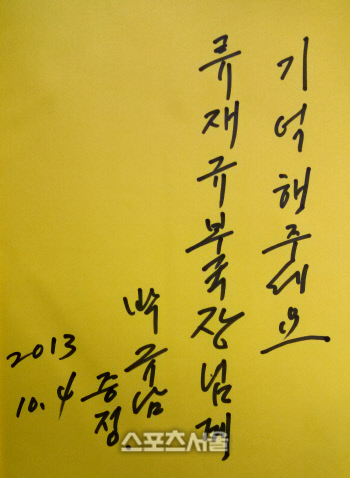 기억해주세요
류재규부국장님께
박규남
증정
2013
10.4
스포츠서울